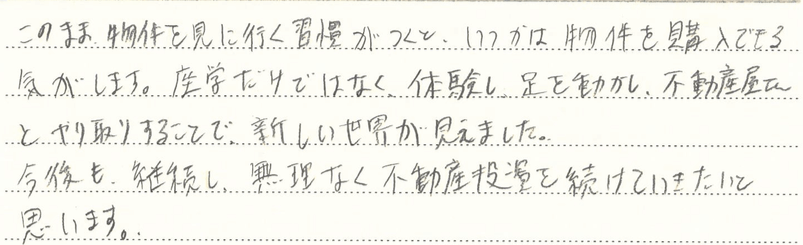 このまま物件を見に行く習慣がつくと、いつかは物件を購入できる
気がします。座学だけではなく、体験し、足を動かし、不動産屋さん
とやり取りすることで、新しい世界が見えました。
今後も、継続し、無理なく不動産投資を続けていきたいと
思います。